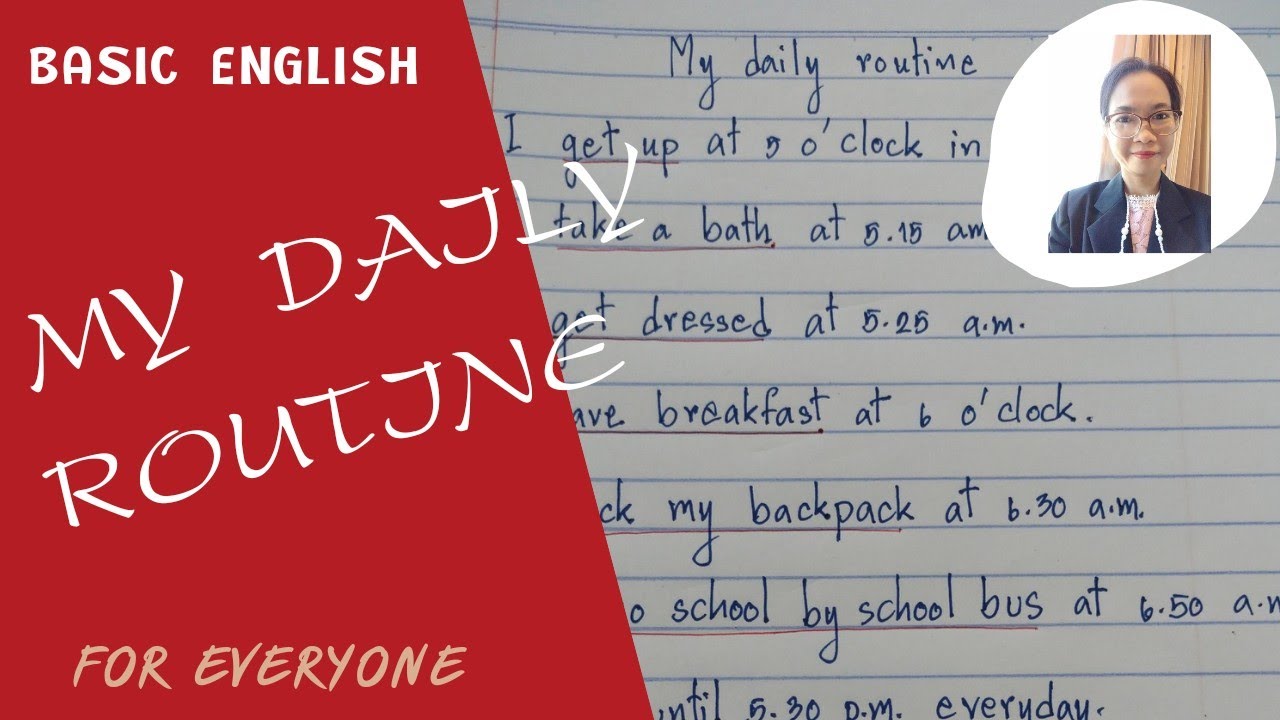 BASIC ENGLISH
MY DAILY
ROUTINE
FOR EVERYONE
My daily routine
I get up at 5 o'clock in
take a bath. at 5.15 am
get dressed at 5.25 a.m.
ave breakfast. at 6 o'clock.
ck my backpack at 6.30 a.m.
o school by school bus at 6.50 a.m
until 5.30 p.m. everyday.